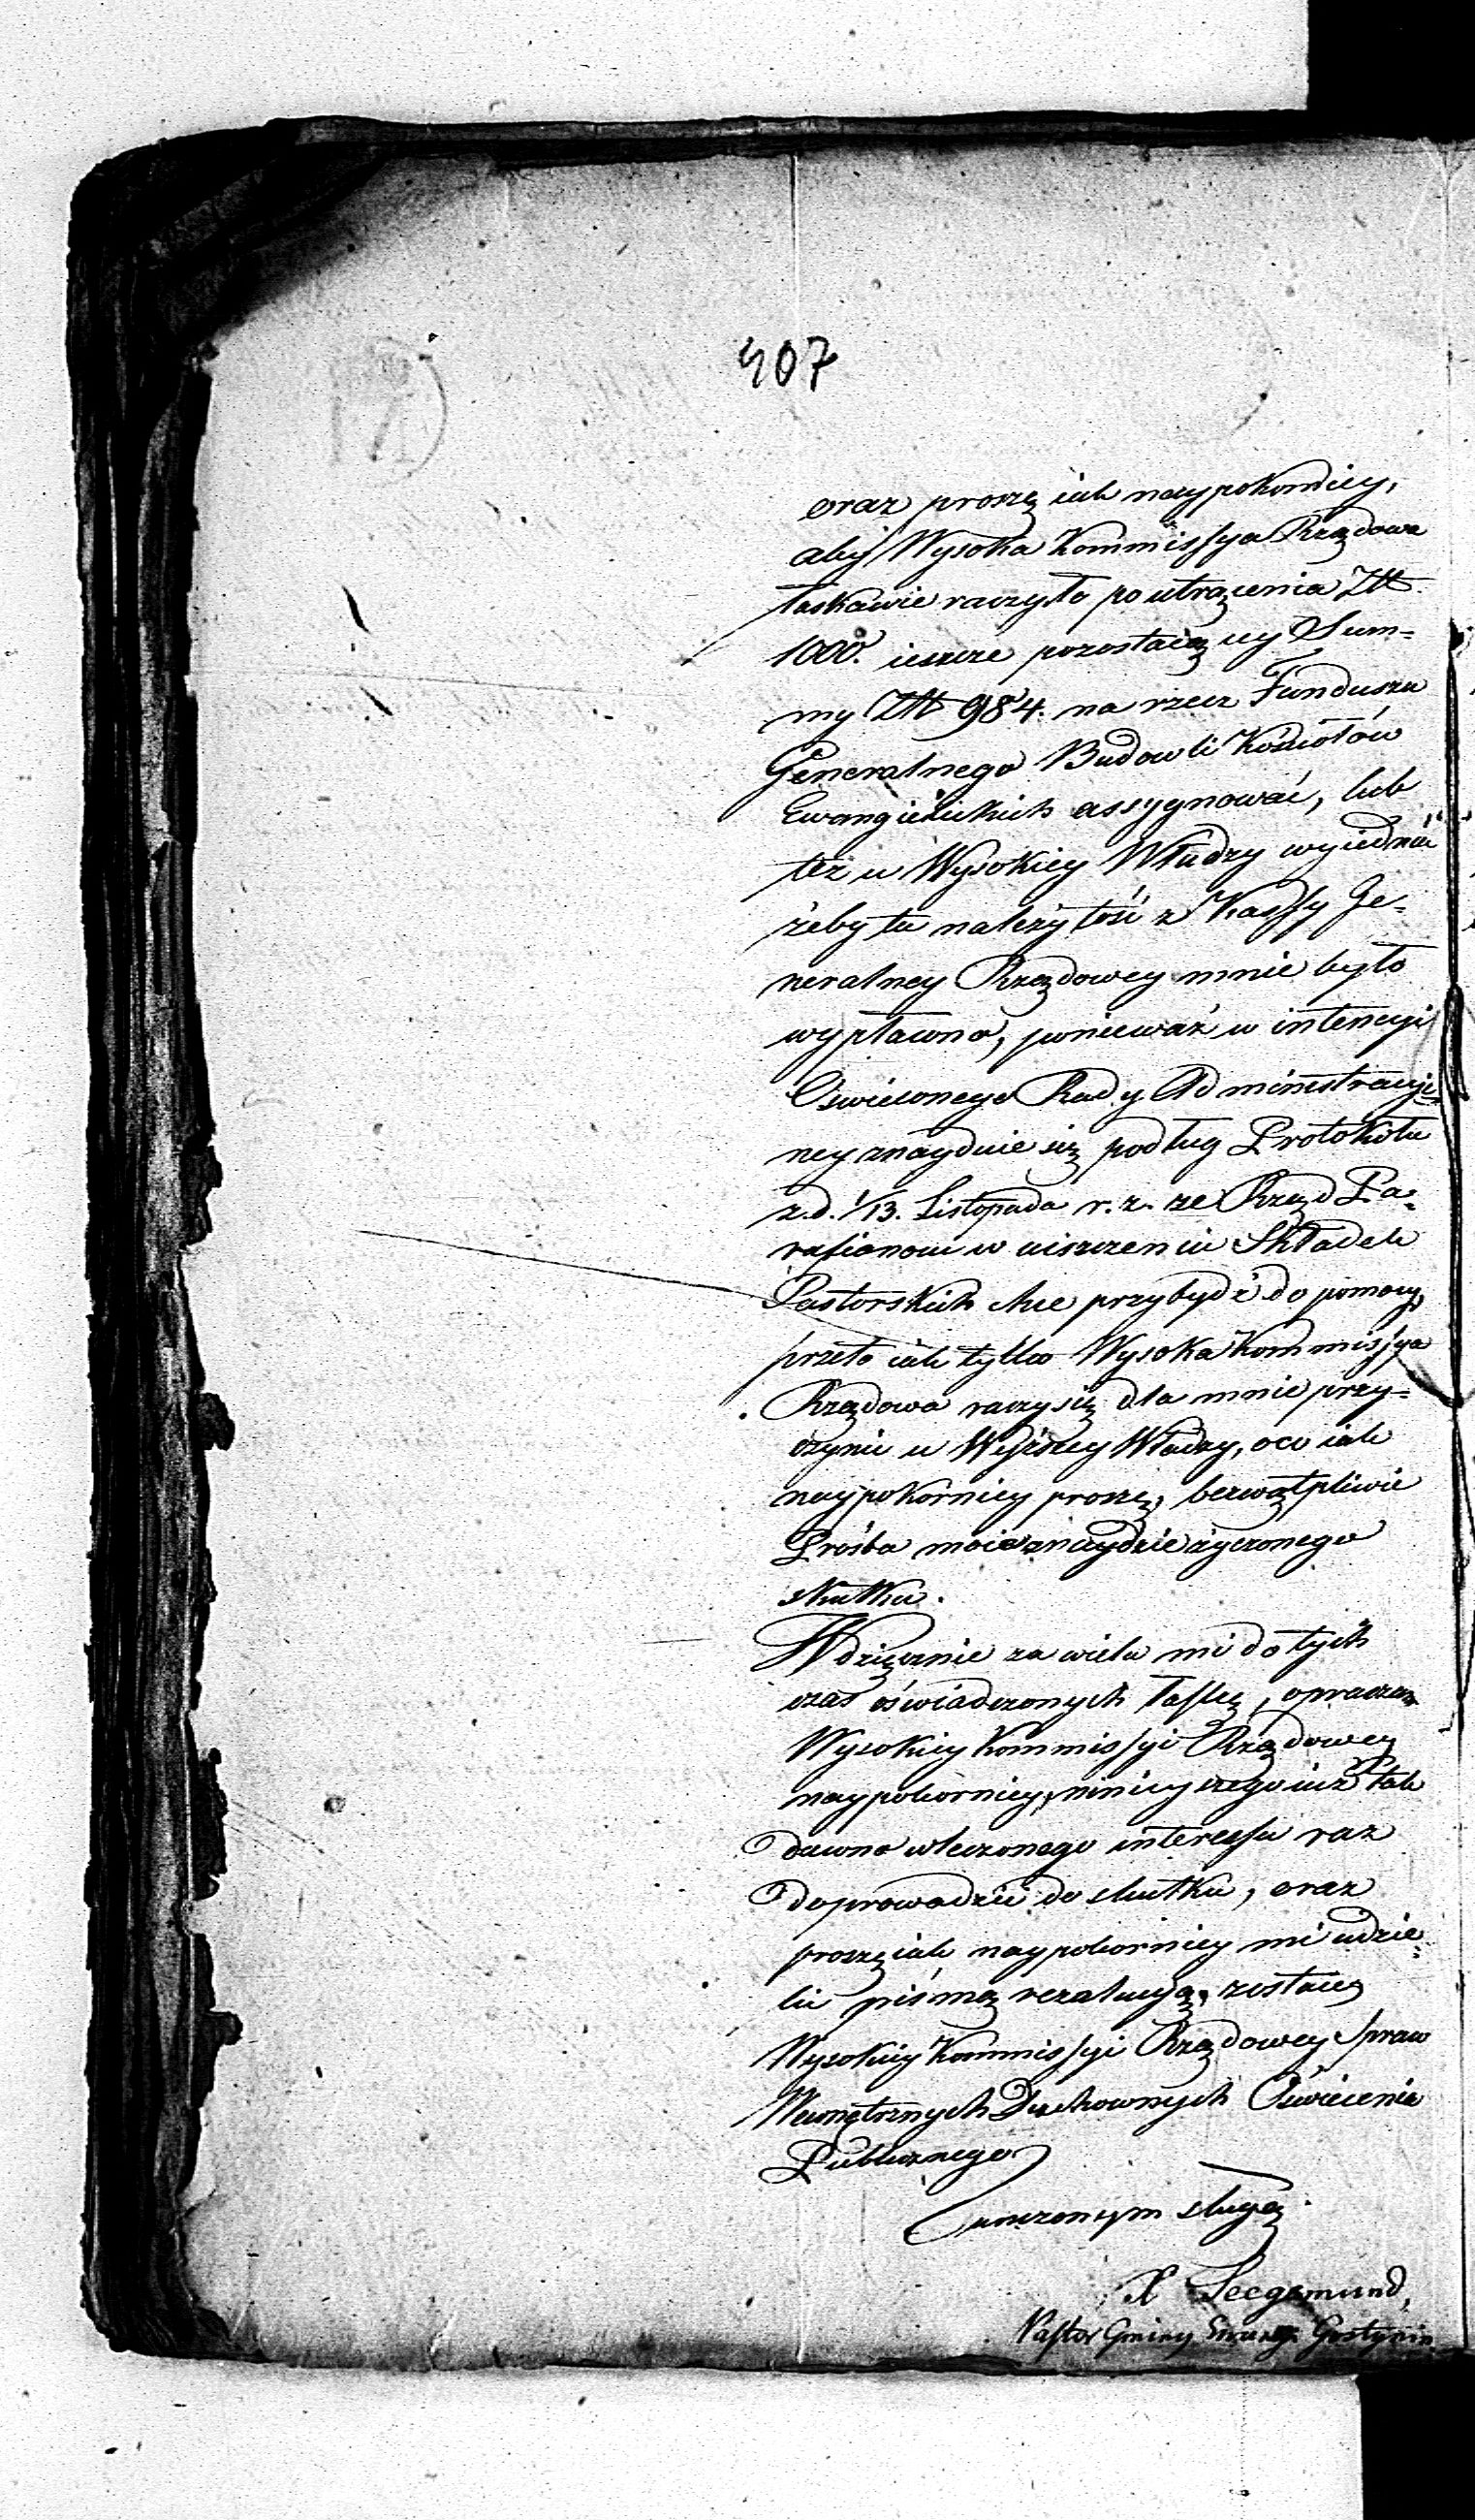 407
oraz proszę iak naypokorniey,
aby Wysoka Kommissya Rządowa
łaskawie raczyła po utrącenia Złt.
1000. ieszcze pozostaiącey Sum=
my Złt 984. na rzecz Funduszu
Generalnego Budowli Kościołów
Ewangielickich assygnować, lub
też u Wysokiey Władzy wyiednać
żeby ta należytość z Kassy Ge=
neralney Rządowey mnie było
wypłacono, ponieważ w intencyi
Oświeconego Rady Administracyi=
ney znayduie się podług Protokółu
z.d. 1/13. Listopada r. z. że Rząd Pa=
rafianom w uiszczeniu Składek
Pastorskich chce przybydź do pomocy,
przeto iak tylko Wysoka Kommissya
Rządowa raczy się dla mnie przy=
czynić u Wyższey Władzy, oco iak
naypokorniey proszę, bezwątpliwie
Prośba moia znaydzie życzonego
skutku.
Wdzięcznie za wielu mi do tych
czas oświadczonych łassk, upraszam
Wysokiey Kommissyi Rządowey
naypokorniey, ninieyszego iuż tak
dawno wleczonego interessu raz
doprowadzić do skutku, oraz
proszę iak naypokorniey mi udzie=
lić pismą rezolucyą, zostaię
Wysokiey Kommissyi Rządowey Spraw
Wewnętrznych Duchownych Oświecenia
Publicznego
uniżonym sługą.
X Seegemund,
Pastor Gminy Ewang. Gostynin